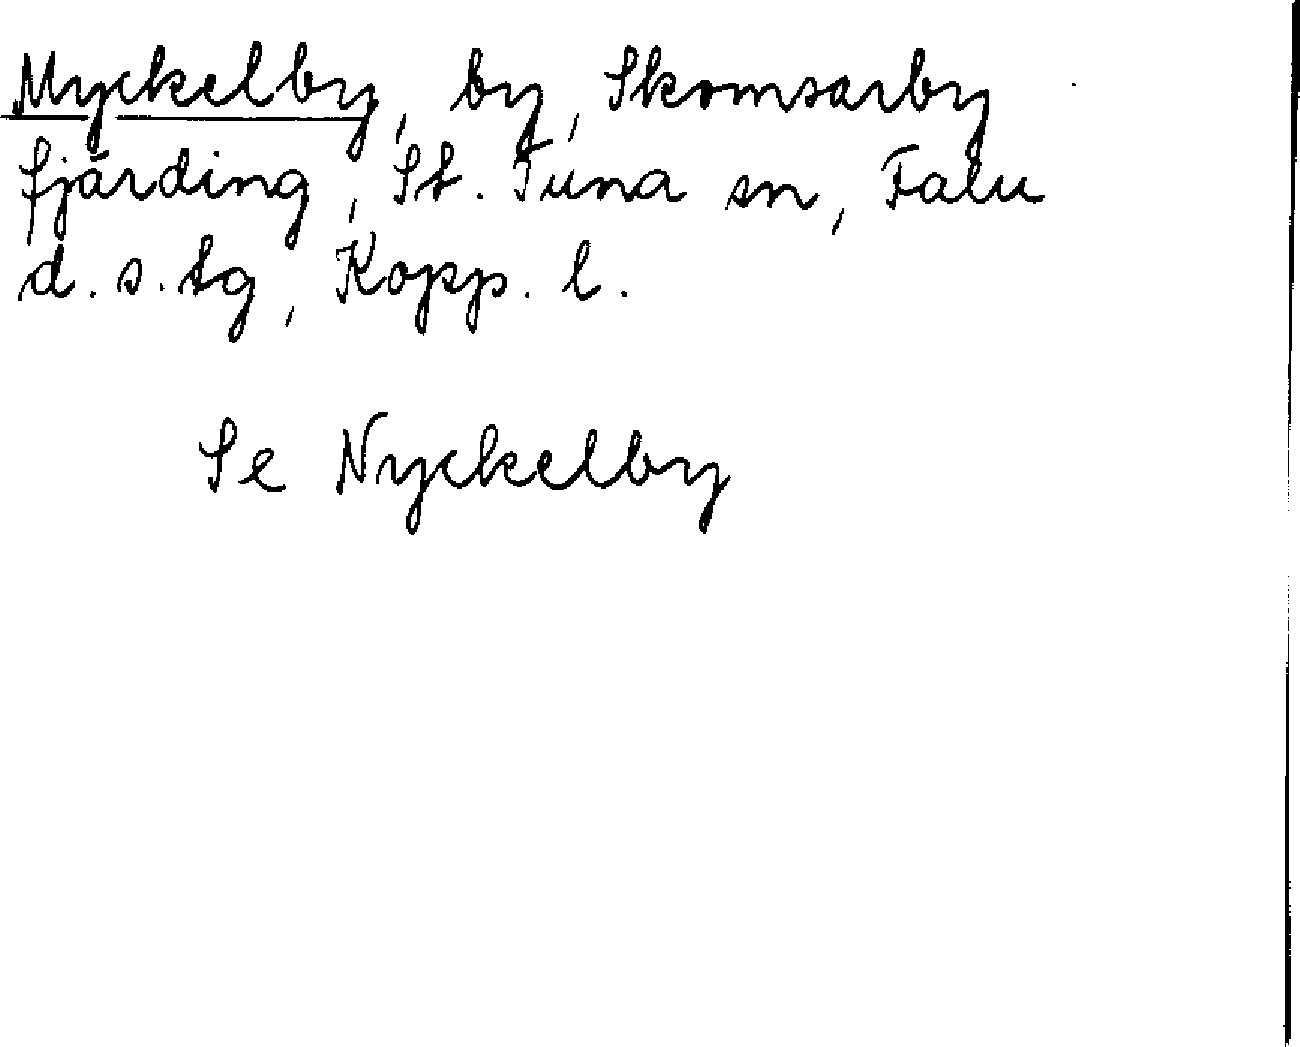 Myckelby, by, Skomsarby
fjärding, St. Tuna sn, Falu
d. s. tg, Kopp. l.
Se Nyckelby